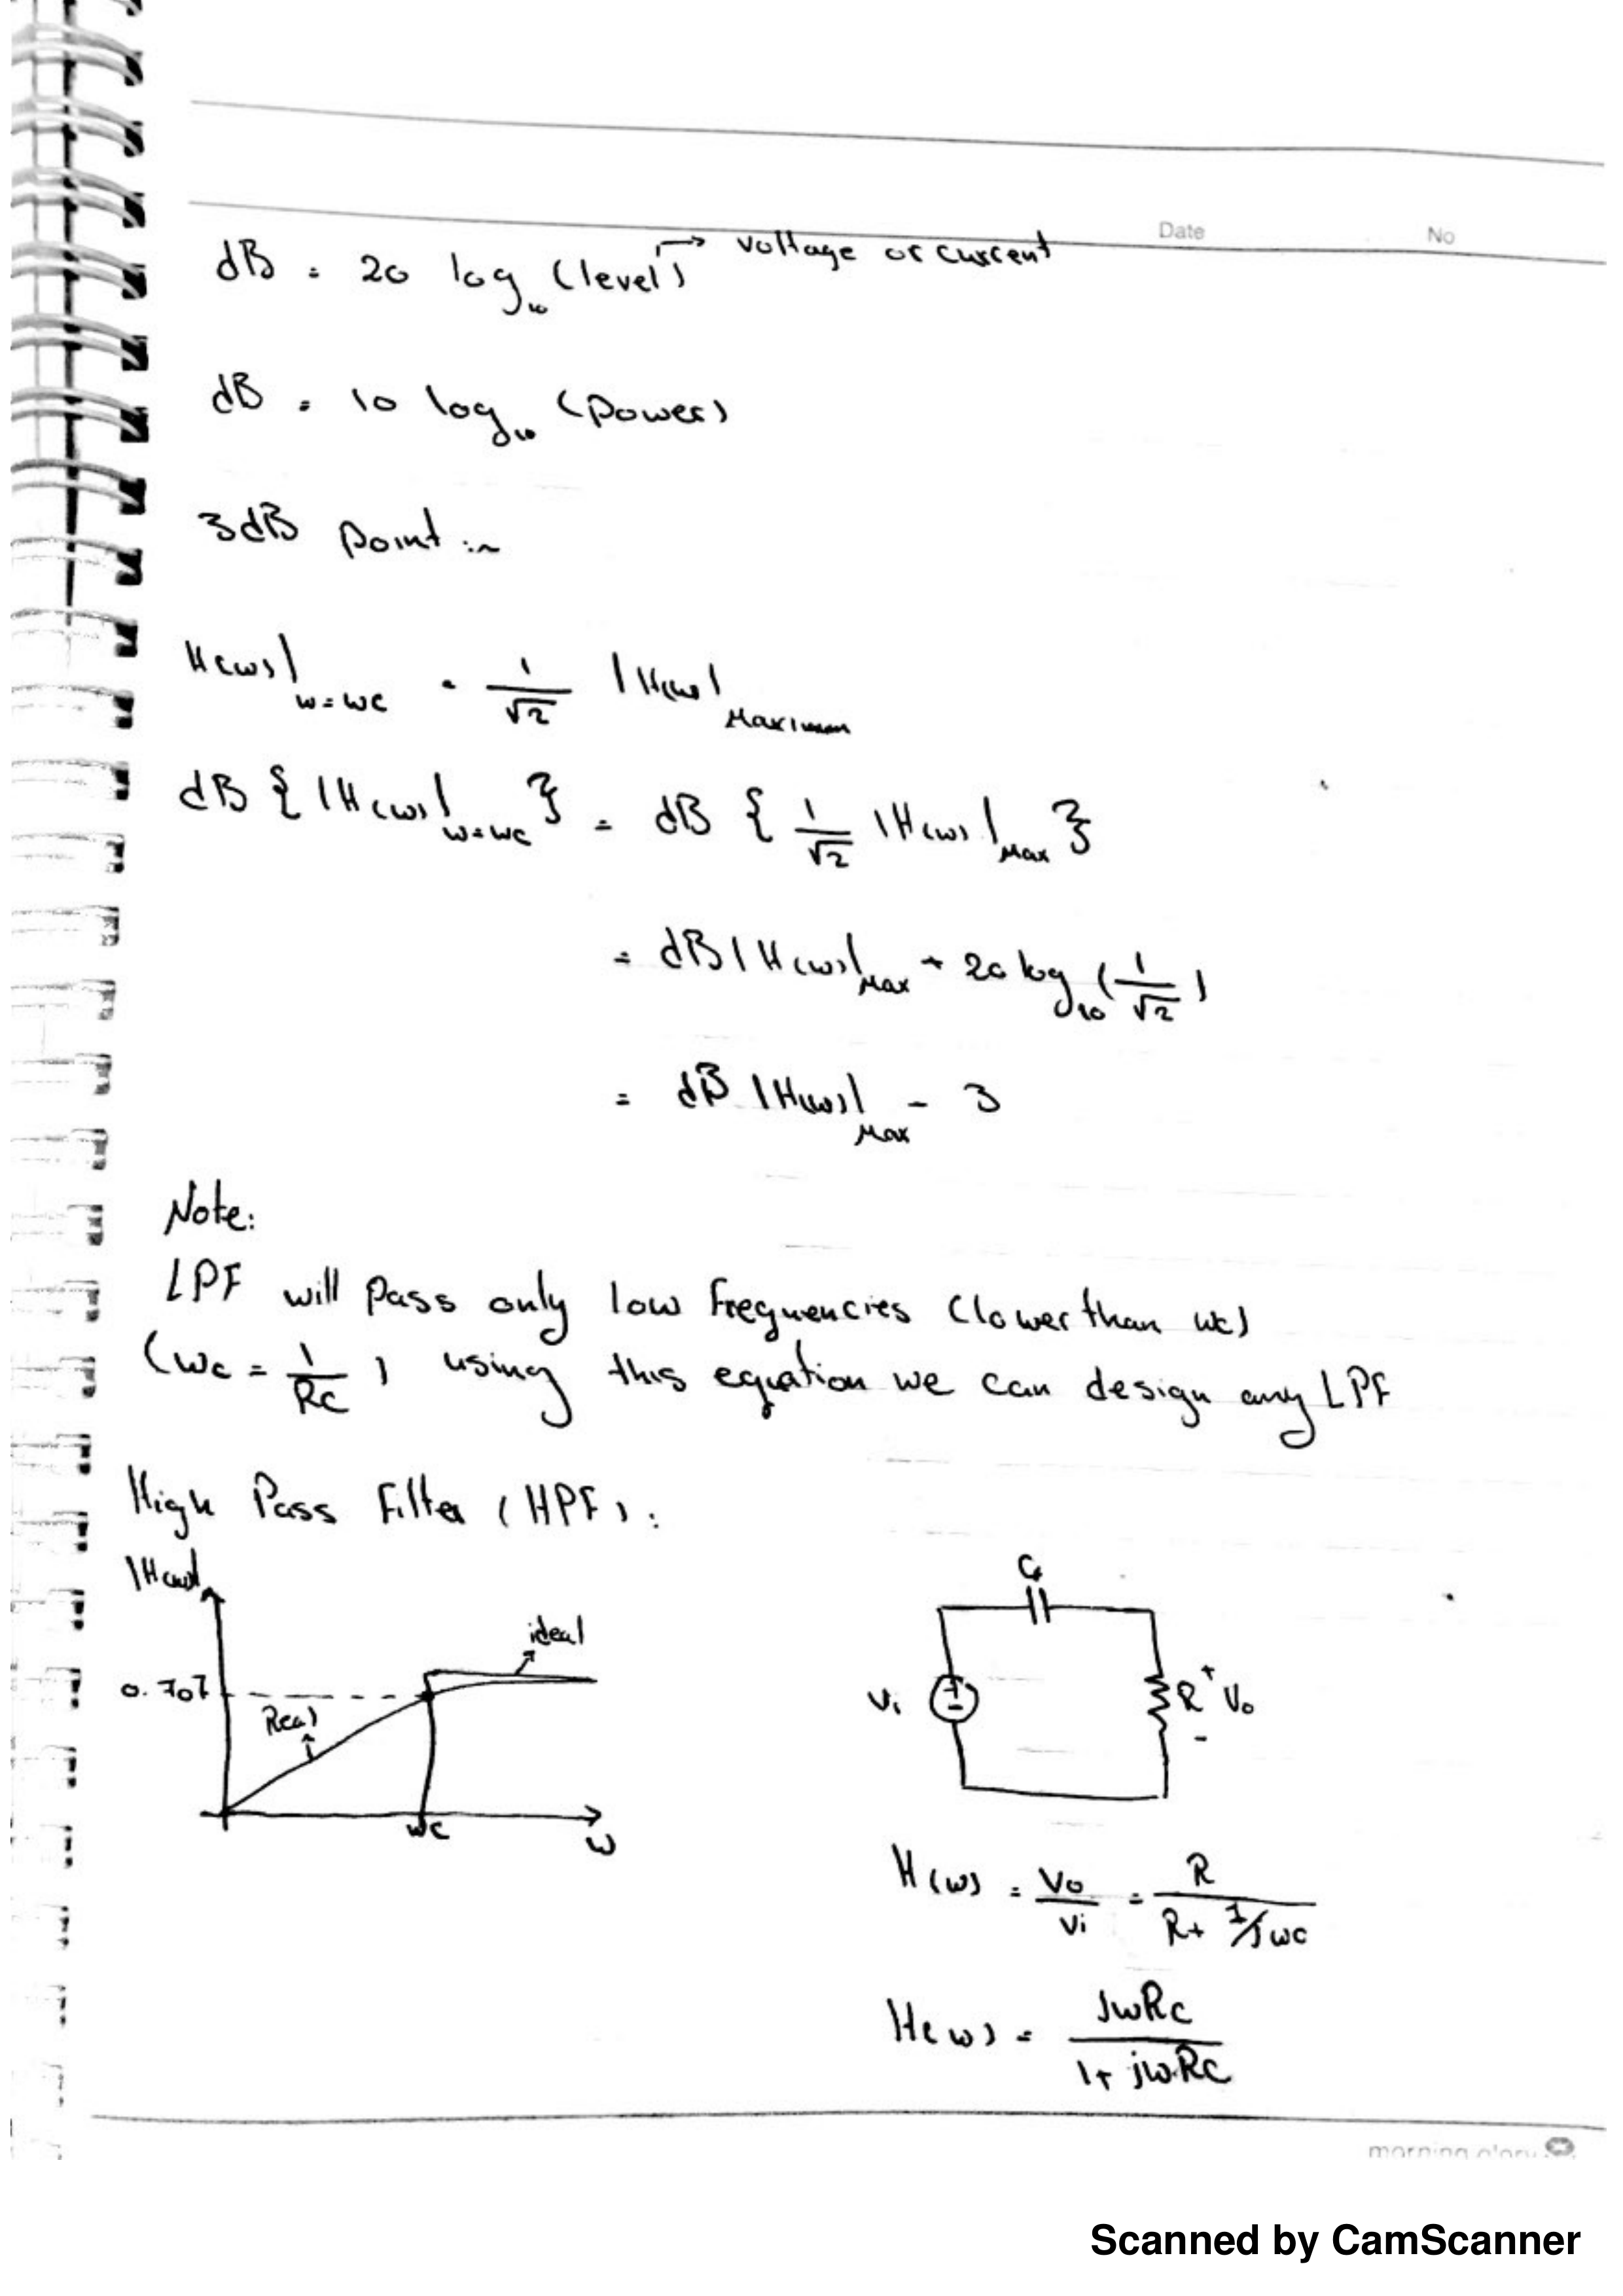 Date No
dB = 20 log₁₀ (level) → voltage or current
dB = 10 log₁₀ (Power)
3dB Point :~
H(w)|w=wc = 1/√2 |H(w)|Maximum
dB { |H(w)|w=wc } = dB { 1/√2 |H(w)|Max }
= dB |H(w)|Max + 20 log₁₀ (1/√2)
= dB |H(w)|Max - 3
Note:
LPF will Pass only low frequencies (lower than wc)
(wc = 1/RC) using this equation we can design any LPF
High Pass Filter (HPF):
|H(w)|
ideal
0.707
Real
wc
w
C
Vi
+
-
R
+
Vo
-
H(w) = Vo/Vi = R/(R+ 1/jwc)
H(w) = jwRC/(1+ jwRC)
morning glory
Scanned by CamScanner